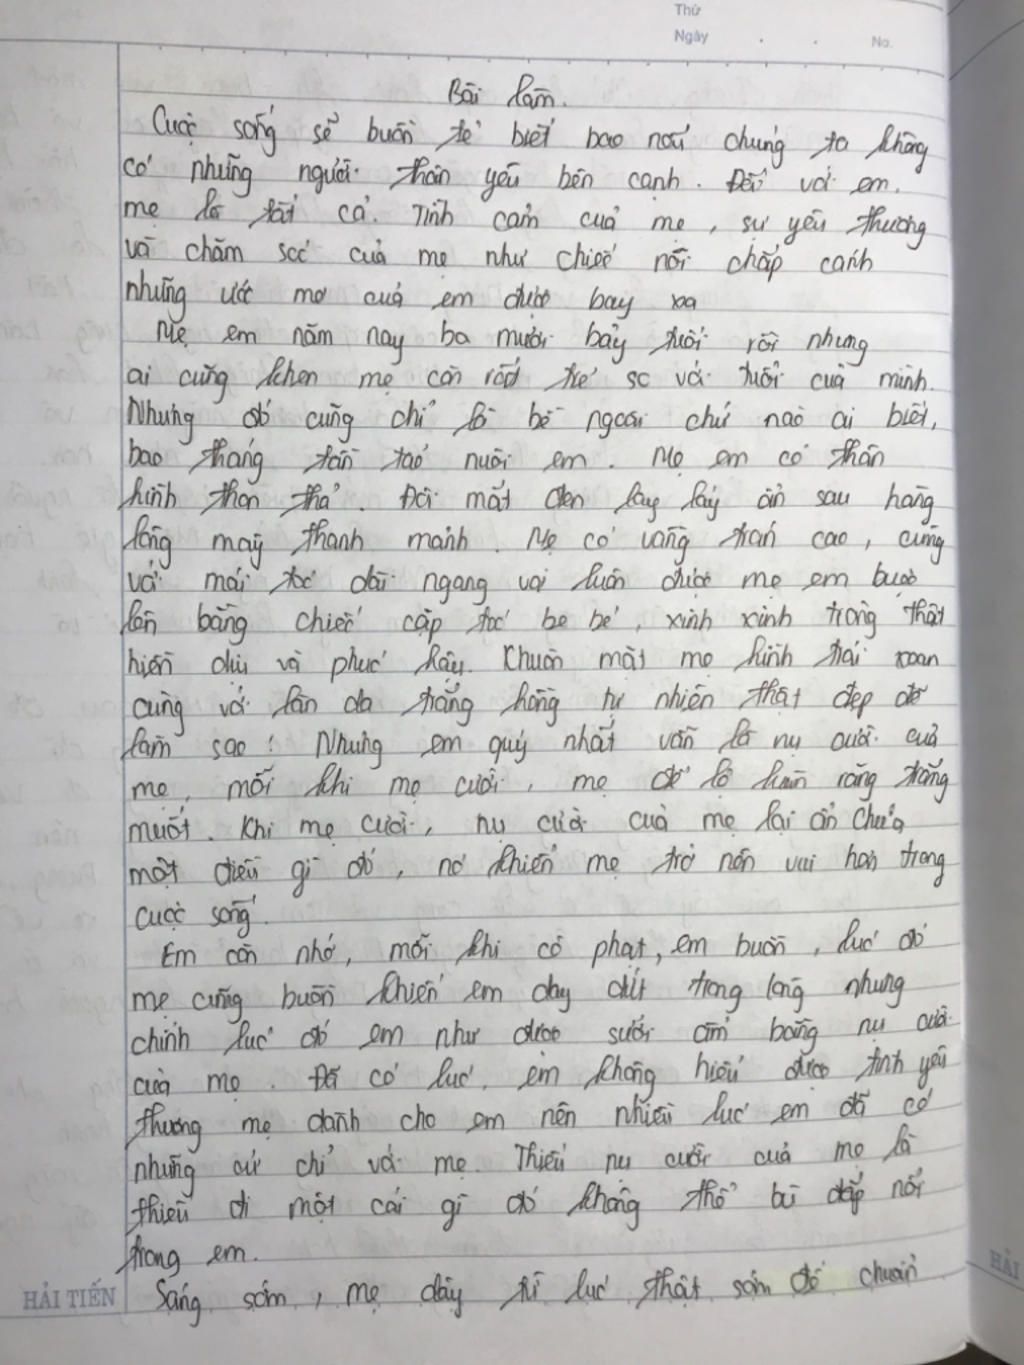 Thứ
Ngày . . No.
Bài làm.
Cuộc sống sẽ buồn tẻ biết bao nếu chúng ta không
có những người thân yêu bên cạnh. Đối với em.
mẹ là tất cả. Tình cảm của mẹ, sự yêu thương
và chăm sóc của mẹ như chiếc nôi chắp cánh
những ước mơ của em được bay xa
Mẹ em năm nay ba mươi bảy tuổi rồi nhưng
ai cũng khen mẹ còn rất trẻ so với tuổi của mình.
Nhưng đó cũng chỉ là bề ngoài chứ nào ai biết,
bao tháng tần tảo nuôi em. Mẹ em có thân
hình thon thả. Đôi mắt đen láy láy ẩn sau hàng
lông mày thanh mảnh. Mẹ có vầng trán cao, cùng
với mái tóc dài ngang vai luôn được mẹ em buộc
lên bằng chiếc cặp tóc be bé, xinh xinh trông thật
hiền dịu và phúc hậu. Khuôn mặt mẹ hình trái xoan
cùng với làn da trắng hồng tự nhiên thật đẹp đẽ
làm sao! Nhưng em quý nhất vẫn là nụ cười của
mẹ, mỗi khi mẹ cười, mẹ để lộ hàm răng trắng
muốt. Khi mẹ cười, nụ cười của mẹ lại ẩn chứa
một điều gì đó, nó khiến mẹ trở nên vui hơn trong
cuộc sống.
Em còn nhớ, mỗi khi cô phạt, em buồn, lúc đó
mẹ cũng buồn khiến em day dứt trong lòng nhưng
chính lúc đó em như được sưởi ấm bằng nụ cười
của mẹ. Đã có lúc, em không hiểu được tình yêu
thương mẹ dành cho em nên nhiều lúc em đã có
những cử chỉ với mẹ. Thiếu nụ cười của mẹ là
thiếu đi một cái gì đó không thể bù đắp nổi
trong em.
Sáng sớm, mẹ dậy từ lúc thật sớm để chuẩn
HẢI TIẾN
HẢI